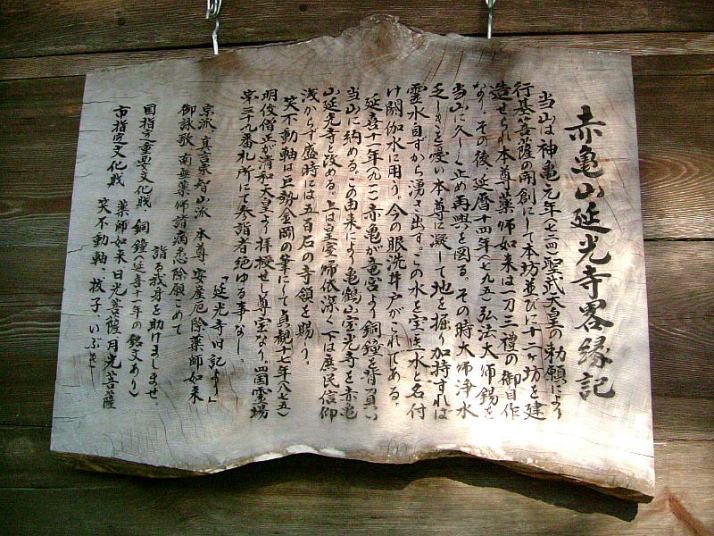 赤亀山延光寺畧縁記
当山は神亀元年(七二四)聖武天皇の勅願により
行基菩薩の開創にして本坊並びに十二ヶ坊を建
造せられ本尊薬師如来は一刀三禮の御自作
なり。その後、延暦十四年(七九五)弘法大師錫を
当山に久しく止め再興を図る。その時大師浄水
乏しきを憂い本尊に凝して地を掘り加持すれば
霊水自ずから湧き出ず。この水を宝医水と名付
け閼伽水に用う。今の眼洗井戸がこれである。
延喜十一年(九一一)赤亀が竜宮より銅鐘を背負い
当山に納める。この由来により亀鶴山宝光寺を赤亀
山延光寺と改める。上は皇室帰依深く、下は庶民信仰
浅からず盛時には五百石の寺領を賜う。
笑不動軸は巨勢金岡の筆にして貞観十七年(八七五)
明俊僧正が清和天皇より拝授せし尊宝なり。四国霊場
第三十九番札所にて参詣者絶ゆる事なし。
「延光寺旧記より」
宗派 真言宗智山派 本尊 安産厄除薬師如来
御詠歌 南無薬師諸病悉除願こめて
詣る我身を助けましませ。
国指定重要文化財、銅鐘(延喜十一年の銘文あり)
薬師如来日光菩薩月光菩薩
市指定文化財
笑不動軸、校子、いぶき